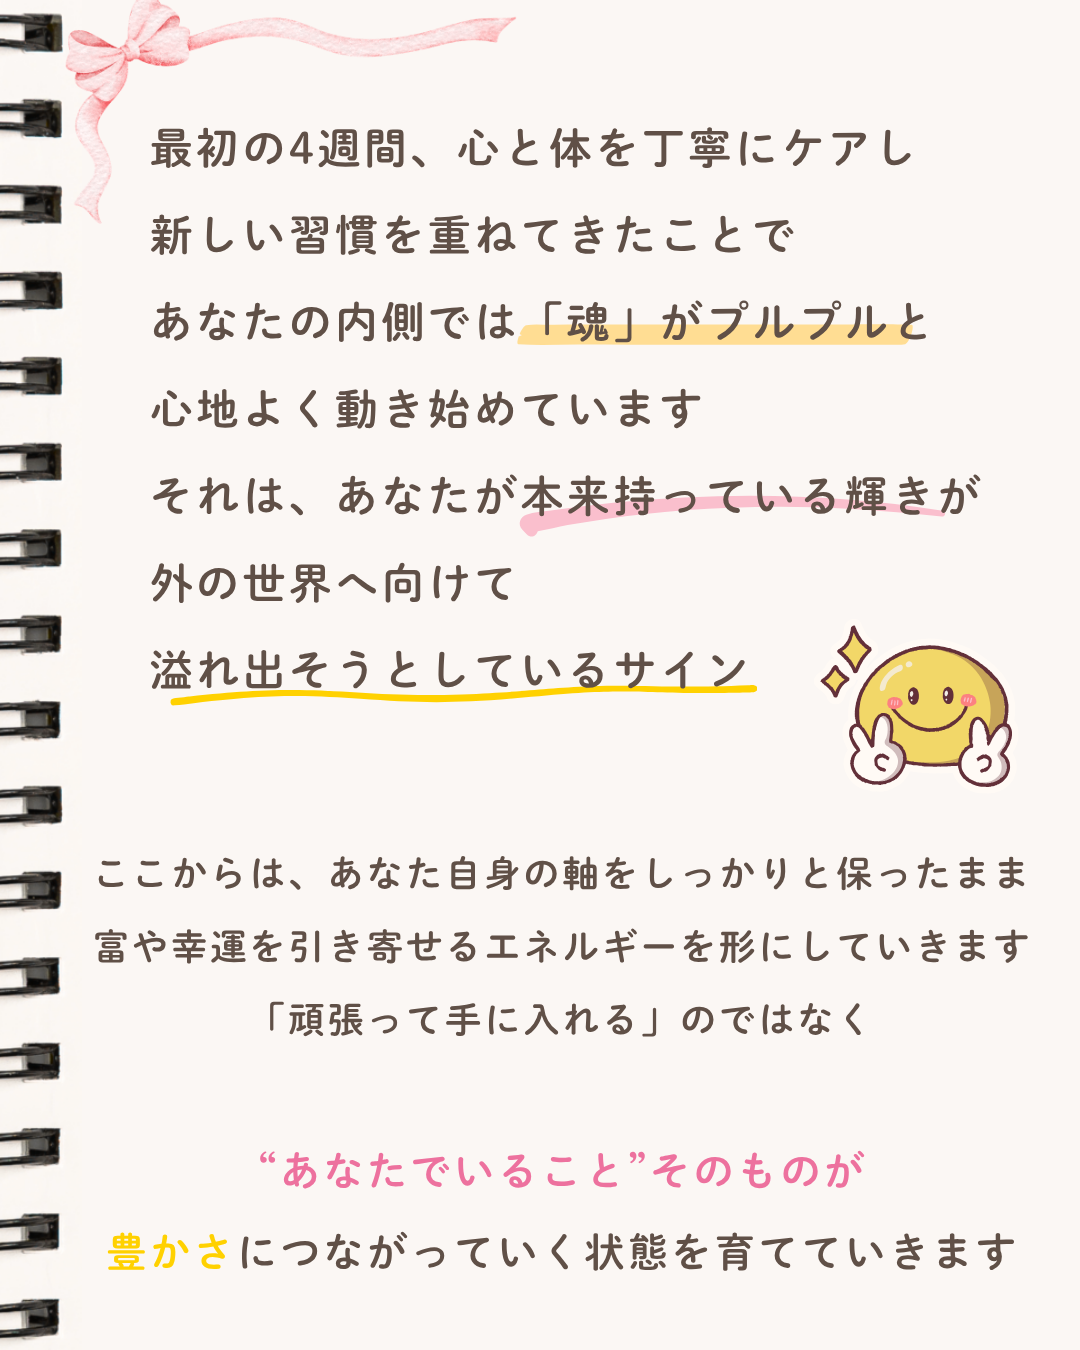 最初の4週間、心と体を丁寧にケアし
新しい習慣を重ねてきたことで
あなたの内側では「魂」がプルプルと
心地よく動き始めています
それは、あなたが本来持っている輝きが
外の世界へ向けて
溢れ出そうとしているサイン
ここからは、あなた自身の軸をしっかりと保ったまま
富や幸運を引き寄せるエネルギーを形にしていきます
「頑張って手に入れる」のではなく
“あなたでいること”そのものが
豊かさにつながっていく状態を育てていきます